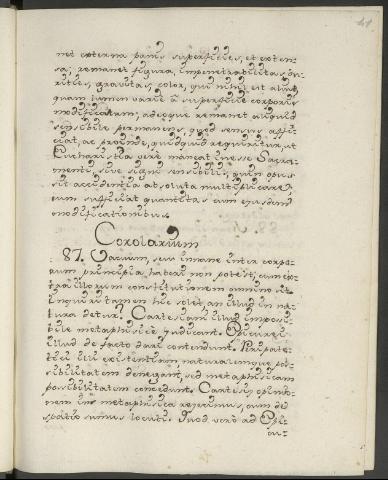 net externa panis superficies, et exten-
sa; remanet figura, impenetrabilitas, du-
rities, gravitas, color, qui nihil est aliud
quam lumen varie à superficie corporis
modificatum; adeoque remanet aliquid
sensibile permanens, quod sensus affi-
ciat, ac proinde, quidquid requiritur, ut
Eucharistia vere maneat in esse Sacra-
menti, sive signi sensibilis; quin opus
sit accidentia absoluta multiplicare,
cum sufficiat quantitas cum ejusdem
modificationibus.
Corolarium
87. Vacuum, seu inane inter corpo-
rum principia haberi non potest, cum ex-
tra illorum constitutionem omnino sit.
Inquiri tamen hic solet, an illud in na-
tura detur. Cartesiani illud impossi-
bile metaphisicè judicant. Epicurei
illud de facto dari contendunt. Peripate-
tici illi existentiam, naturalemque pos-
sibilitatem denegant, sed metaphisicam
possibilitatem concedunt. Cartesii opinio-
nem in metaphisica rejecimus, cum de
spatio sumus locuti. Quod vero ad Epi-
cu-